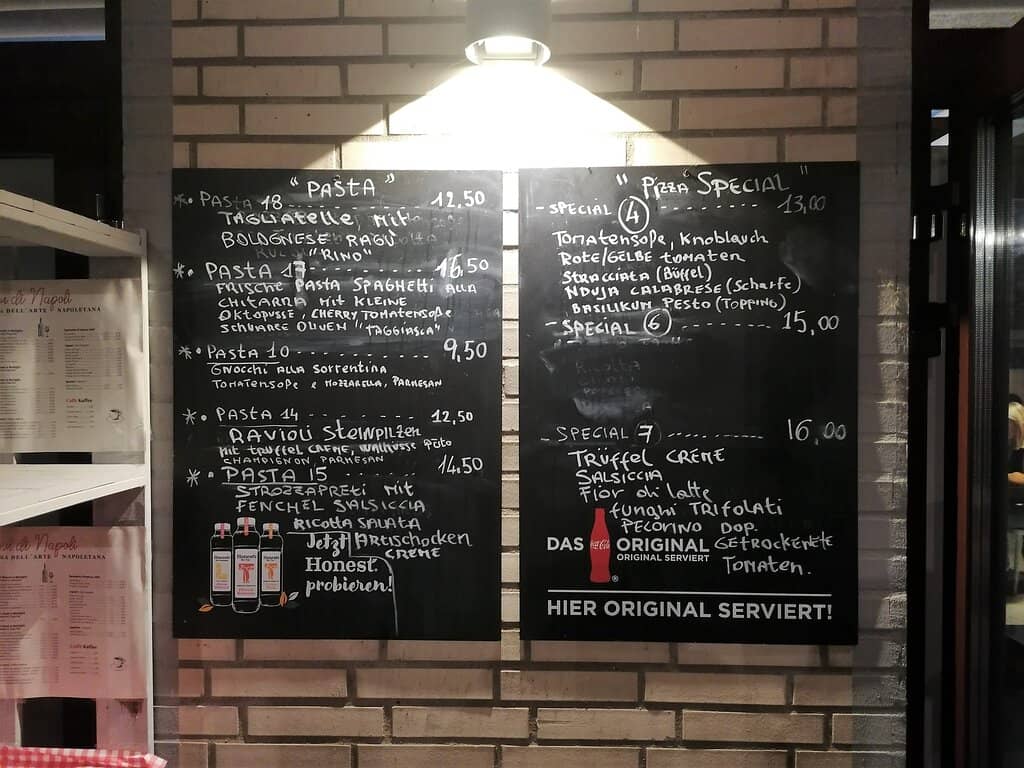 "PASTA"
*. PASTA 18 12,50
TAGLIATELLE MIT
BOLOGNESE RAGÚ
"RINO"
*. PASTA 17 - - - - - - - - - - 16,50
FRISCHE PASTA SPAGHETTI ALLA
CHITARRA MIT KLEINE
OKTOPUSSE, CHERRYTOMATENSOßE
SCHWARZE OLIVEN "TAGGIASCA"
*. PASTA 10 - - - - - - - - - - 9,50
GNOCCHI ALLA SORRENTINA
TOMATENSOßE e MOZZARELLA, PARMESAN
*. PASTA 14 - - - - - - - - 12,50
RAVIOLI STEINPILZEN
MIT TRÜFFEL CREME, WALNÜSSE
CHAMPIGNON PARMESAN
*. PASTA 15 - - - - - - - - 14.50
STROZZAPRETI MIT
FENCHEL SALSICCIA
RICOTTA SALATA
ARTISCHOCKEN
CREME
Jetzt
Honest
probieren!
" Pizza SPECIAL "
- SPECIAL 4 - - - - - - - - - - 13,00
TOMATENSOßE, KNOBLAUCH
ROTE/GELBE TOMATEN
STRACCIATA (BÜFFEL)
NDUJA CALABRESE (Scharfe)
BASILIKUM PESTO (TOPPING)
- SPECIAL 6 - - - - - - - - - - 15,00
- SPECIAL 7 - - - - - - - - - - 16,00
TRÜFFEL CREME
SALSICCIA
Fior di latte
funghi TRIFOLATI
PECORINO DOP.
GETROCKENETE
TOMATEN.
DAS Coca-Cola ORIGINAL
ORIGINAL SERVIERT
HIER ORIGINAL SERVIERT!
di Napoli
DELL'ARTE NAPOLETANA
di Napoli
DELL'ARTE NAPOLETANA